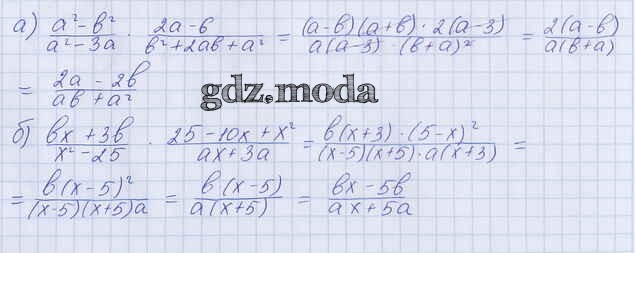 а) (a² - b²)/(a² - 3a) · (2a - 6)/(b² + 2ab + a²) = ((a-b)(a+b) · 2(a-3))/(a(a-3) · (b+a)²) = 2(a-b)/(a(b+a))
= (2a - 2b)/(ab + a²)
gdz.moda
б) (bx + 3b)/(x² - 25) · (25 - 10x + x²)/(ax + 3a) = (b(x+3) · (5-x)²)/((x-5)(x+5) · a(x+3)) =
= (b(x-5)²)/((x-5)(x+5)a) = (b(x-5))/(a(x+5)) = (bx - 5b)/(ax + 5a)